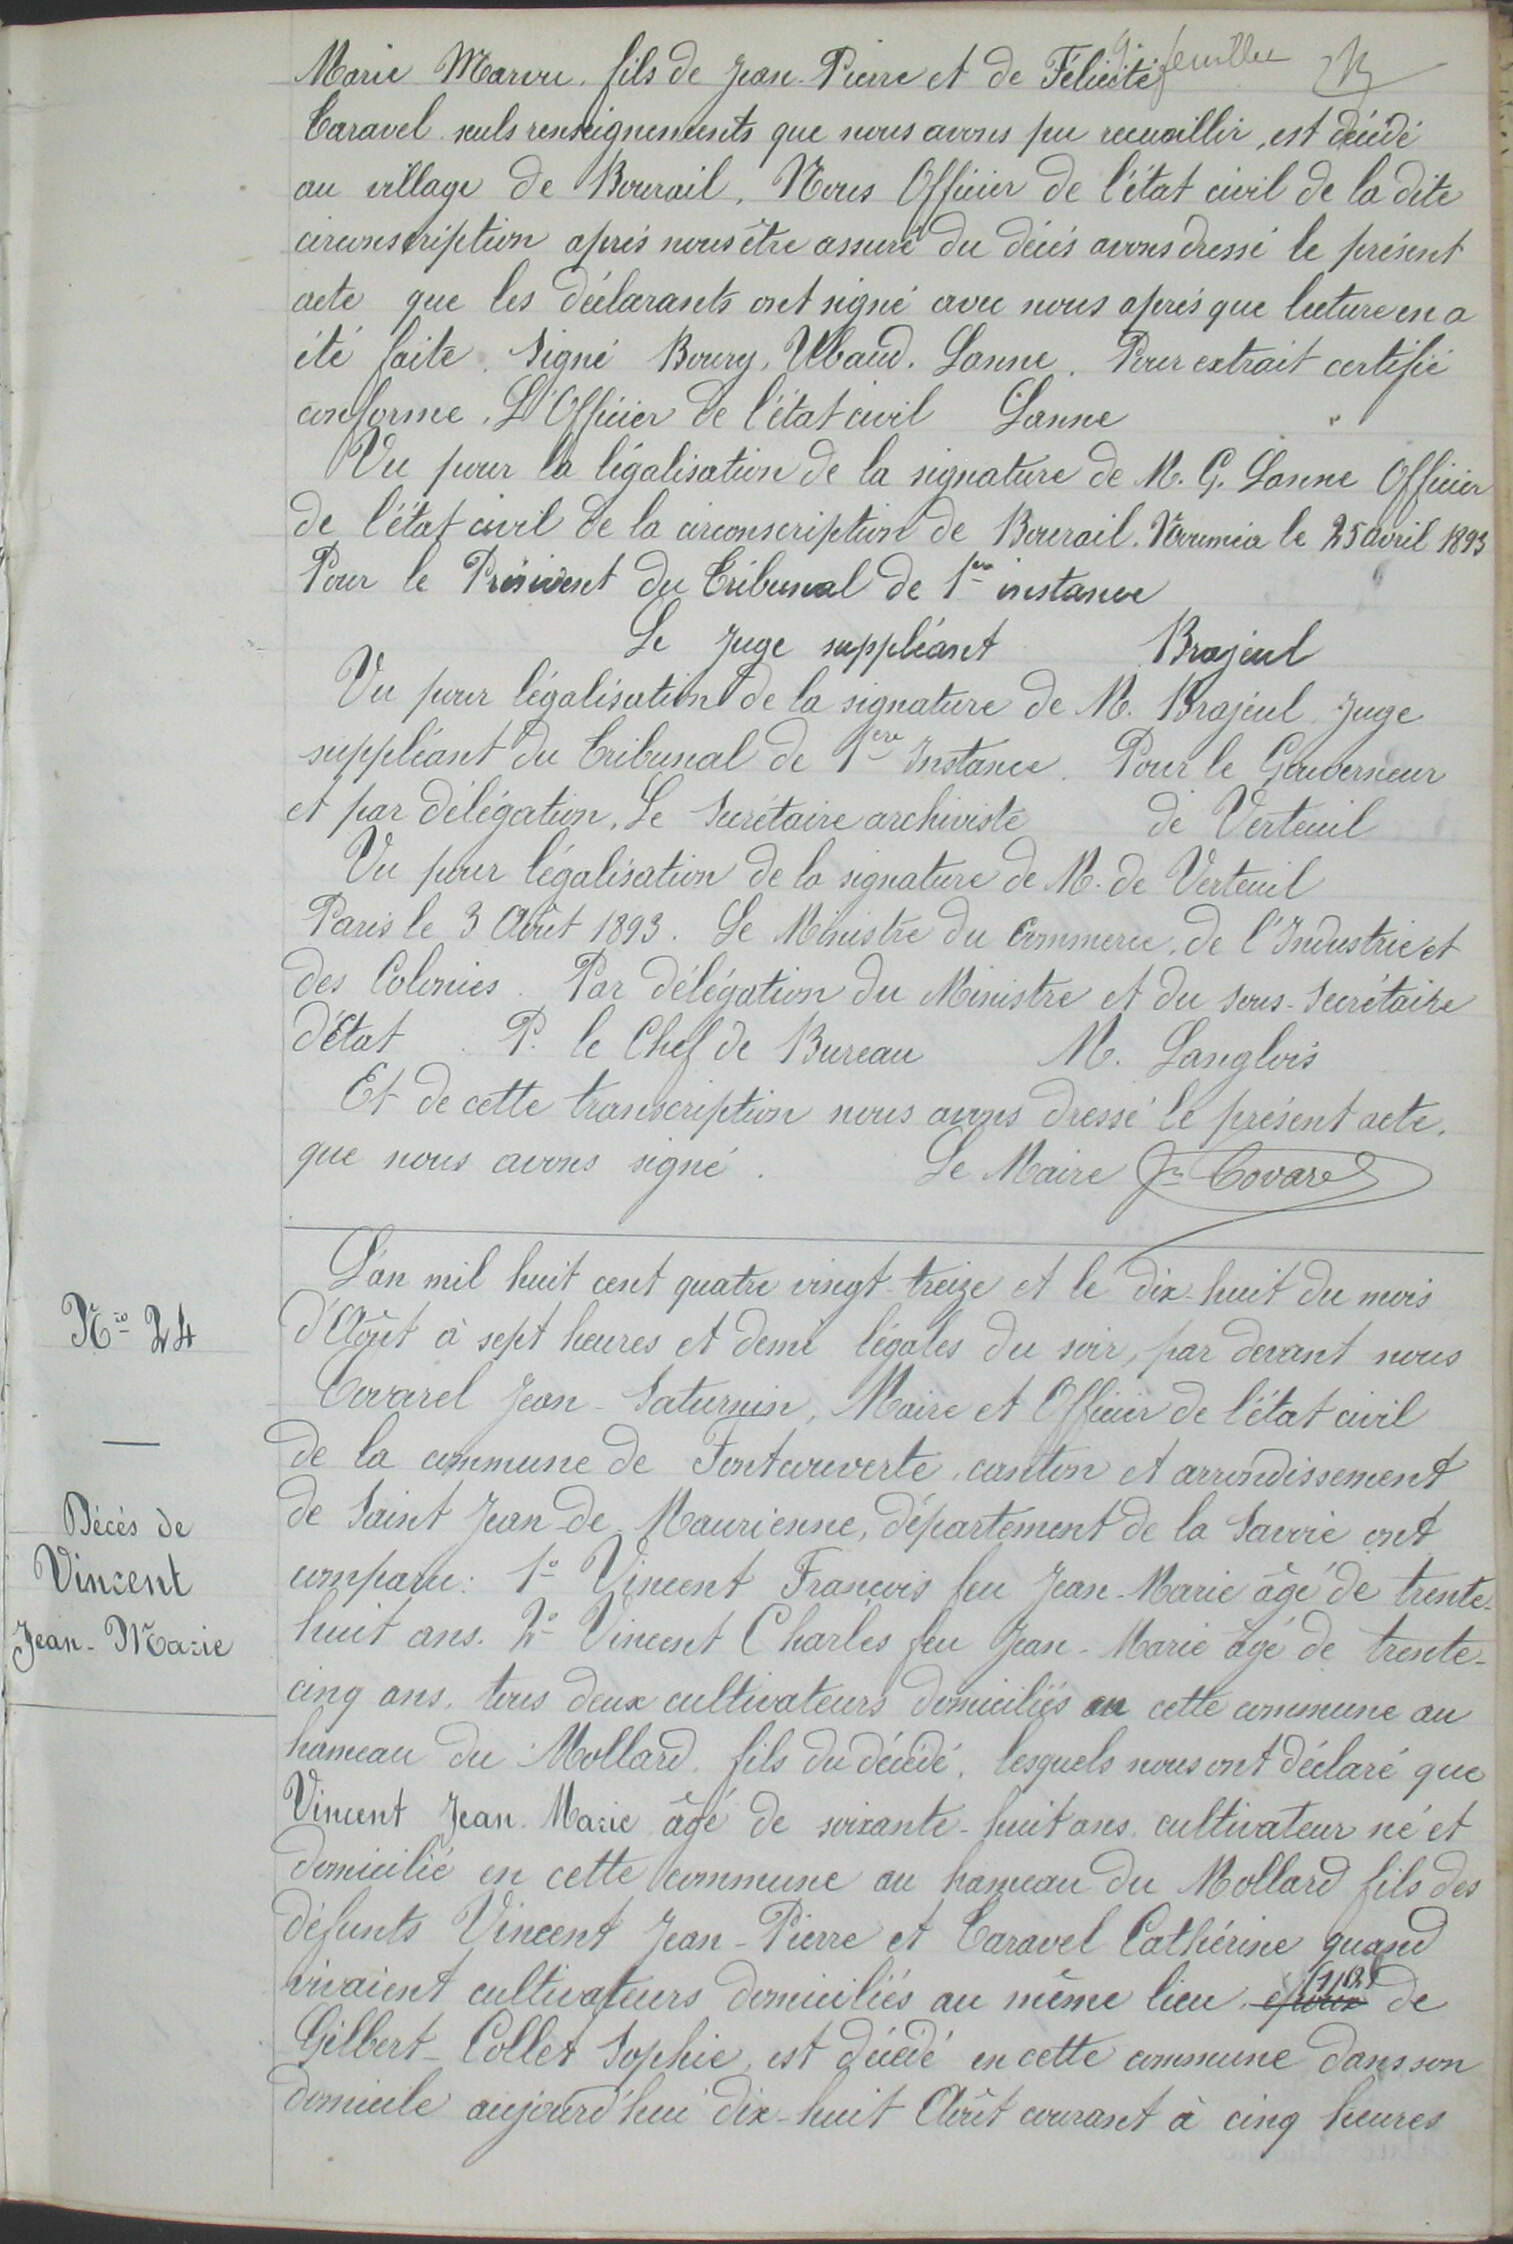 feuillet
Marie Marou. fils de Jean-Pierre et de Félicité
Caravel seuls renseignements que nous avons pu recueillir, est décédé
au village de Bourail. Nous Officier de l'état civil de la dite
circonscription après nous être assuré du décès avons dressé le présent
acte que les déclarants ont signé avec nous après que lecture en a
été faite. Signé Boury, Ubaud. Lanne. Pour extrait certifié
conforme. L'Officier de l'état civil Lanne
Vu pour la légalisation de la signature de M. G. Lanne Officier
de l'état civil de la circonscription de Bourail. Nouméa le 25 avril 1893
Pour le Président du Tribunal de 1re instance
Le Juge suppléant Brajeul
Vu pour légalisation de la signature de M. Brajeul Juge
suppléant du Tribunal de 1ère Instance. Pour le Gouverneur
et par délégation. Le Secrétaire archiviste de Verteuil
Vu pour légalisation de la signature de M. de Verteuil
Paris le 3 Août 1893. Le Ministre du Commerce, de l'Industrie et
des Colonies. Par délégation du Ministre et du sous-Secrétaire
d'Etat P. le Chef de Bureau M. Langlois
Et de cette transcription nous avons dressé le présent acte.
que nous avons signé. Le Maire Jn Covarel
L'an mil huit cent quatre vingt-treize et le dix-huit du mois
Nro 24
d'Août à sept heures et demi légales du soir, par devant nous
Covarel Jean-Saturnin, Maire et Officier de l'état civil
de la commune de Fontcouverte, canton et arrondissement
Décés de
Vincent
Jean-Marie
de Saint Jean-de-Maurienne, département de la Savoie ont
comparu: 1° Vincent François feu Jean-Marie âgé de trente-
huit ans. 2° Vincent Charles feu Jean-Marie âgé de trente-
cinq ans, tous deux cultivateurs domiciliés en cette commune au
hameau du Mollard. fils du décédé. lesquels nous ont déclaré que
Vincent Jean-Marie âgé de soixante-huit ans cultivateur né et
domicilié en cette commune au hameau du Mollard fils des
défunts Vincent Jean-Pierre et Caravel Cathérine quand
vivaient cultivateurs domiciliés au même lieu, époux de
Gilbert-Collet Sophie, est décédé en cette commune dans son
domicile aujourd'hui dix-huit Août courant à cinq heures